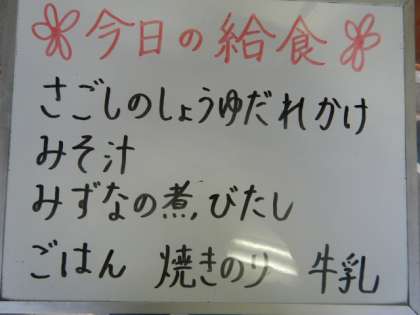 今日の給食
さごしのしょうゆだれかけ
みそ汁
みずなの煮びたし
ごはん 焼きのり 牛乳